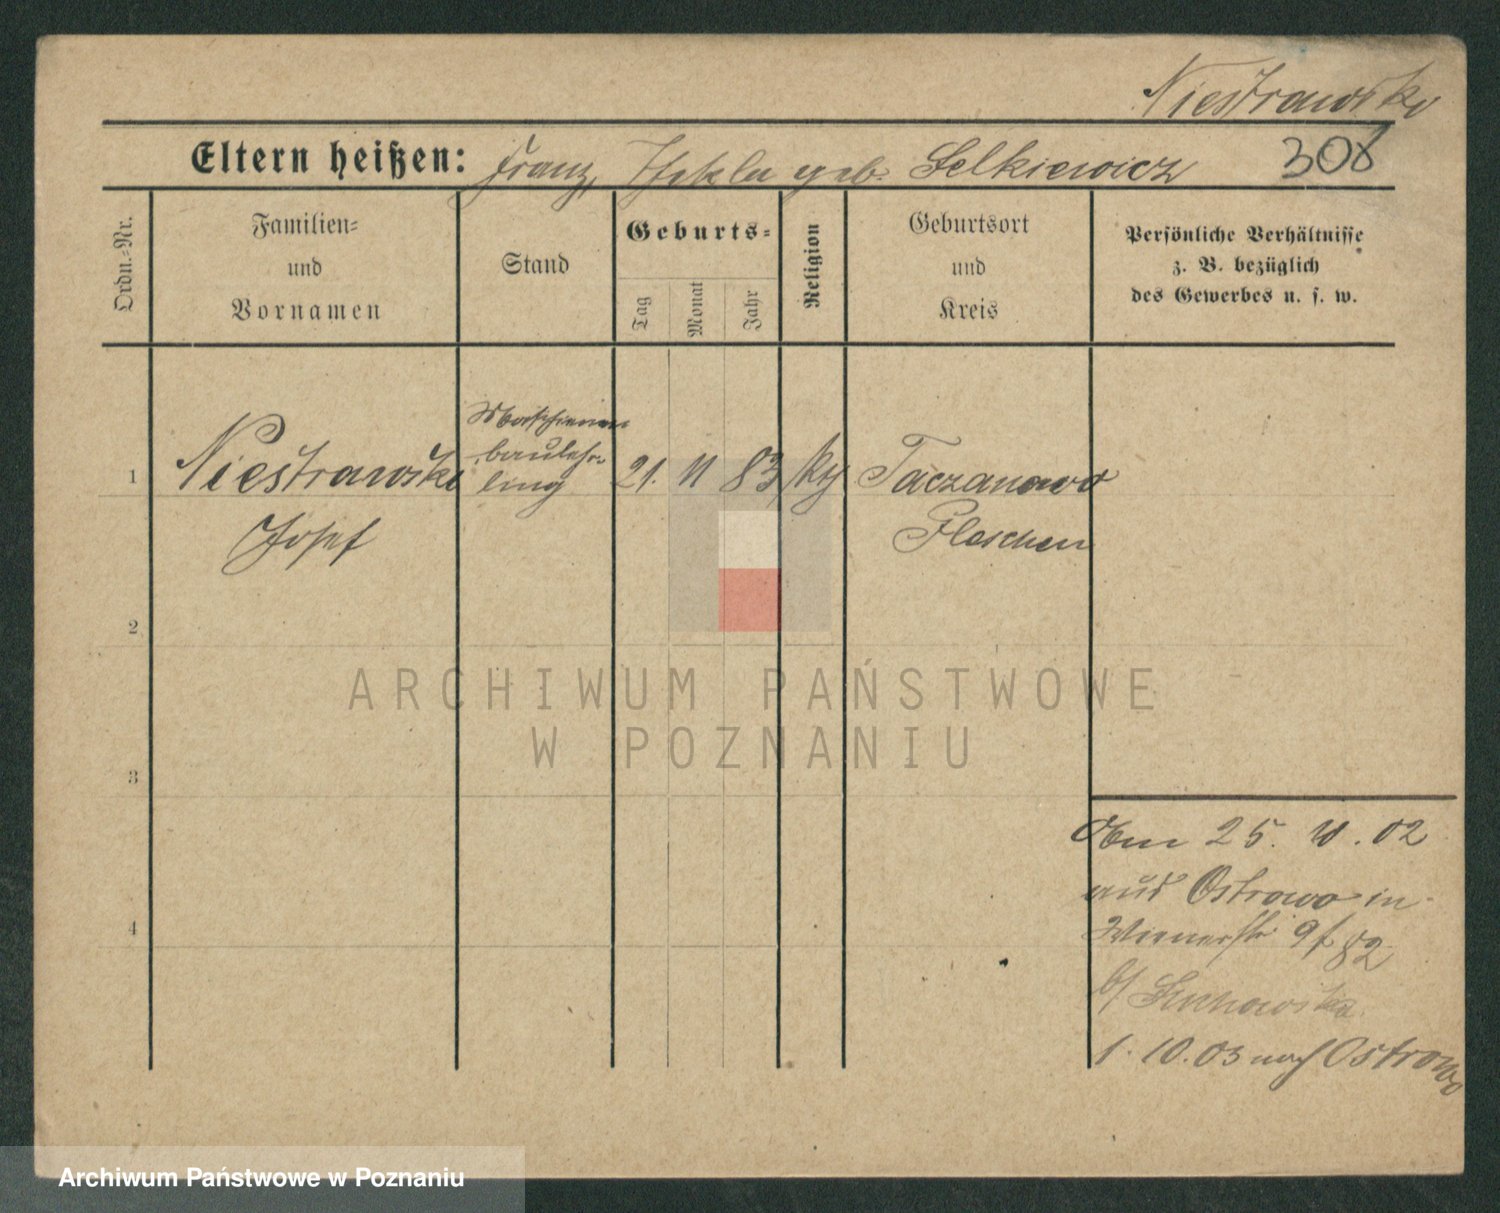 Niestrawski
Eltern heißen: Franz, Thekla geb. Selkiewicz 308
Ordn.-Nr.
Familien-
und
Vornamen
Stand
Geburts-
Tag
Monat
Jahr
Religion
Geburtsort
und
Kreis
Persönliche Verhältnisse
z. B. bezüglich
des Gewerbes u. s. w.
1
Niestrawski
Josef
Maschienen
baulehr-
ling
21. 11 83 kt
Taczanowo
Pleschen
2
3
4
Am 25. 10. 02
aus Ostrowo in
Wienerstr 9
b/
1. 10. 03 nach Ostrowo
ARCHIWUM PAŃSTWOWE
W POZNANIU
Archiwum Państwowe w Poznaniu